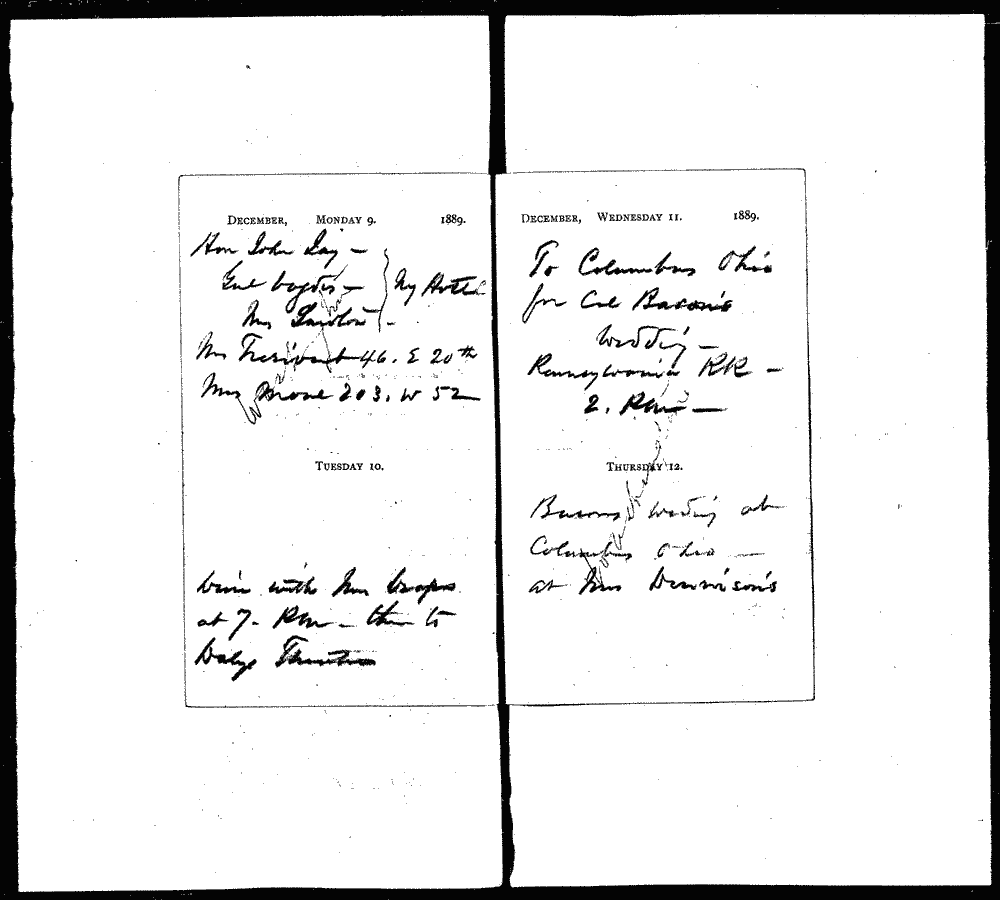 DECEMBER, MONDAY 9. 1889.
Hon John Jay —
Genl —
Mrs — } My Hotel
Mrs 46. E 20th
Mrs 203. W 52
TUESDAY 10.
Dine with Mrs
at 7. PM — then to
Dalys Theatre
DECEMBER, WEDNESDAY 11. 1889.
To Columbus Ohio
for Col Bacon's
Wedding —
Pennsylvania RR —
2. PM —
THURSDAY 12.
Bacons wedding at
Columbus Ohio —
at Mrs Dennison's